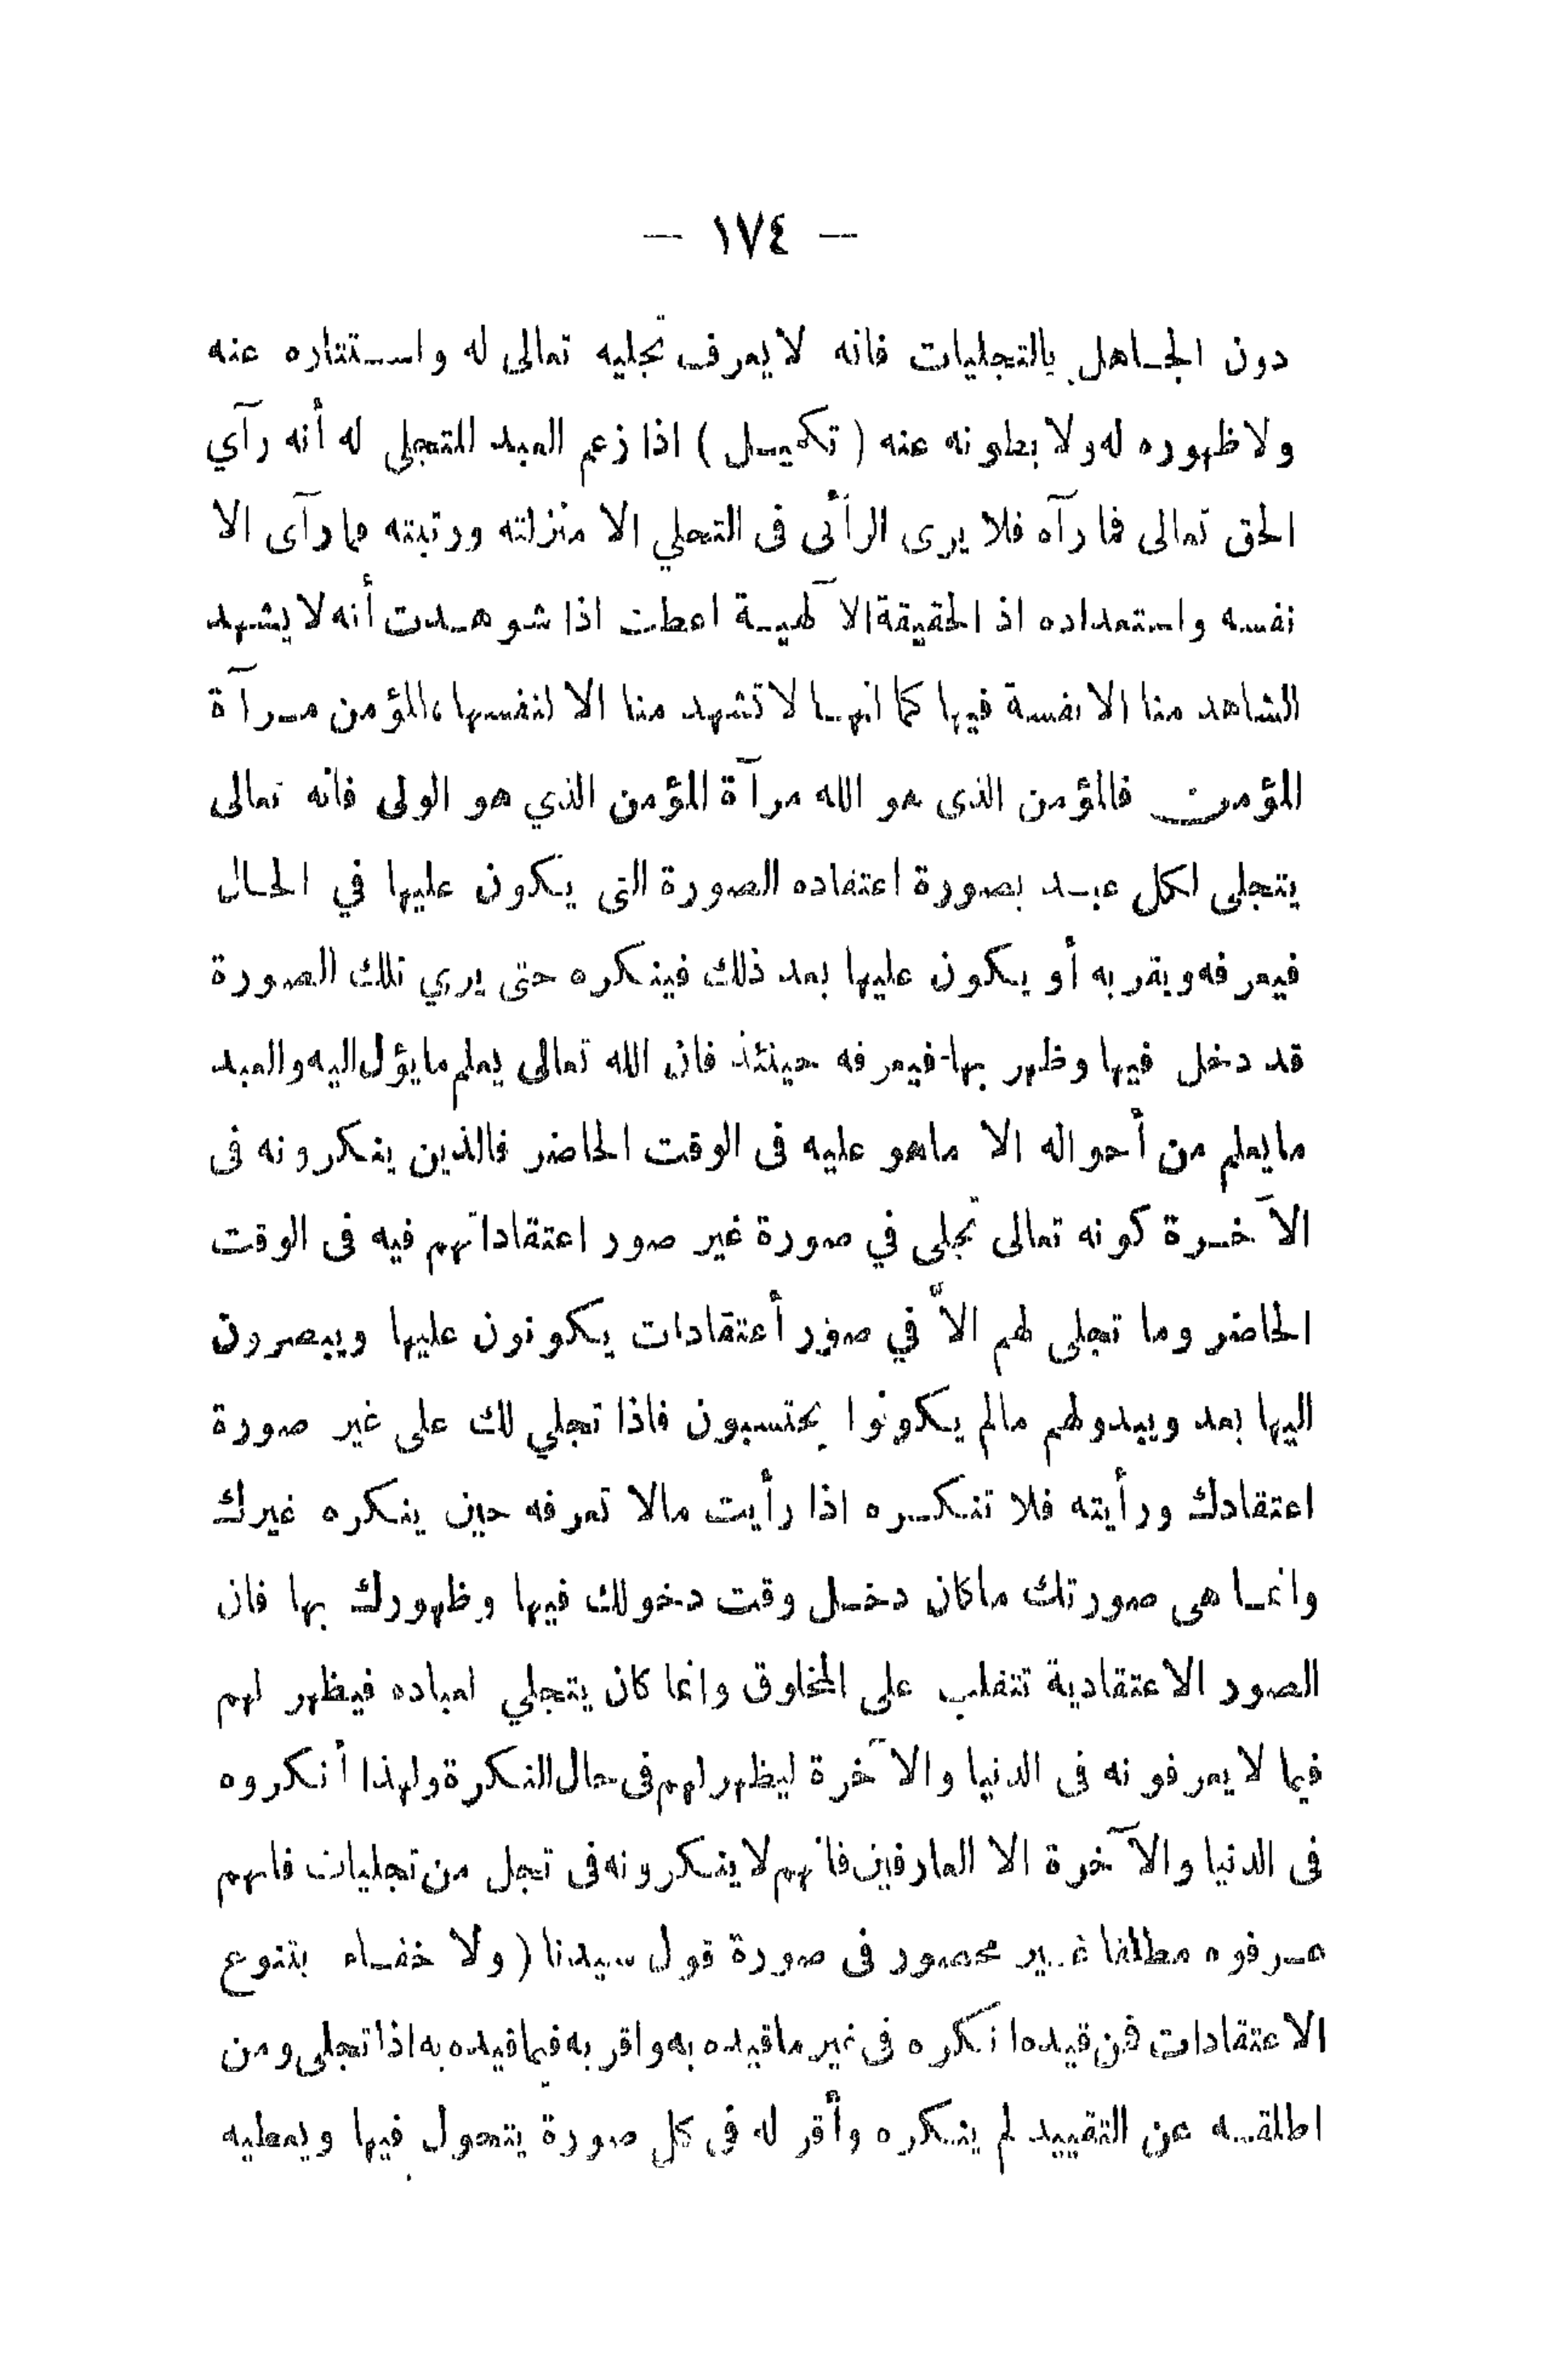 — ١٧٤ —
دون الجاهل بالتجليات فانه لا يعرف تجليه تعالى له واستتاره عنه
ولا ظهوره له ولا بطونه عنه ( تكميل ) اذا زعم العبد المتجلى له أنه رآي
الحق تعالى فما رآه فلا يرى الرأئى فى التجلي الا منزلته ورتبته فما رآى الا
نفسه واستعداده اذ الحقيقة الآلهية اعطت اذا شوهدت أنه لا يشهد
الشاهد منا الا نفسة فيها كما انها لا تشهد منا الا لنفسها، المؤمن مرآة
المؤمن فالمؤمن الذى هو الله مرآة المؤمن الذي هو الولى فانه تعالى
يتجلى لكل عبد بصورة اعتقاده الصورة التى يكون عليها في الحال
فيعرفه ويقر به أو يكون عليها بعد ذلك فينكره حتى يري تلك الصورة
قد دخل فيها وظهر بها فيعرفه حينئذ فان الله تعالى يعلم مايؤل اليه والعبد
مايعلم من أحواله الا ماهو عليه فى الوقت الحاضر فالذين ينكرونه فى
الآخرة كونه تعالى تجلى في صورة غير صور اعتقاداتهم فيه فى الوقت
الحاضر وما تجلى لهم الاّ في صور أعتقادات يكونون عليها ويبصرون
اليها بعد ويبدولهم مالم يكونوا يحتسبون فاذا تجلي لك على غير صورة
اعتقادك ورأيته فلا تنكره اذا رأيت مالا تعرفه حين ينكره غيرك
وانما هى صورتك ماكان دخل وقت دخولك فيها وظهورك بها فان
الصور الاعتقادية تتقلب على المخلوق وانما كان يتجلي لعباده فيظهر لهم
فيما لا يعرفونه فى الدنيا والآخرة ليظهر لهم فى حال النكرة ولهذا أنكروه
فى الدنيا والآخرة الا العارفين فانهم لا ينكرونه فى تجل من تجليات فانهم
عرفوه مطلقا غير محصور فى صورة قول سيدنا ( ولا خفاء بتنوع
الاعتقادات فمن قيده انكره فى غير ماقيده به واقر به فيما قيده به اذا تجلى ومن
اطلقه عن التقييد لم ينكره وأقر له فى كل صورة يتحول فيها ويعطيه